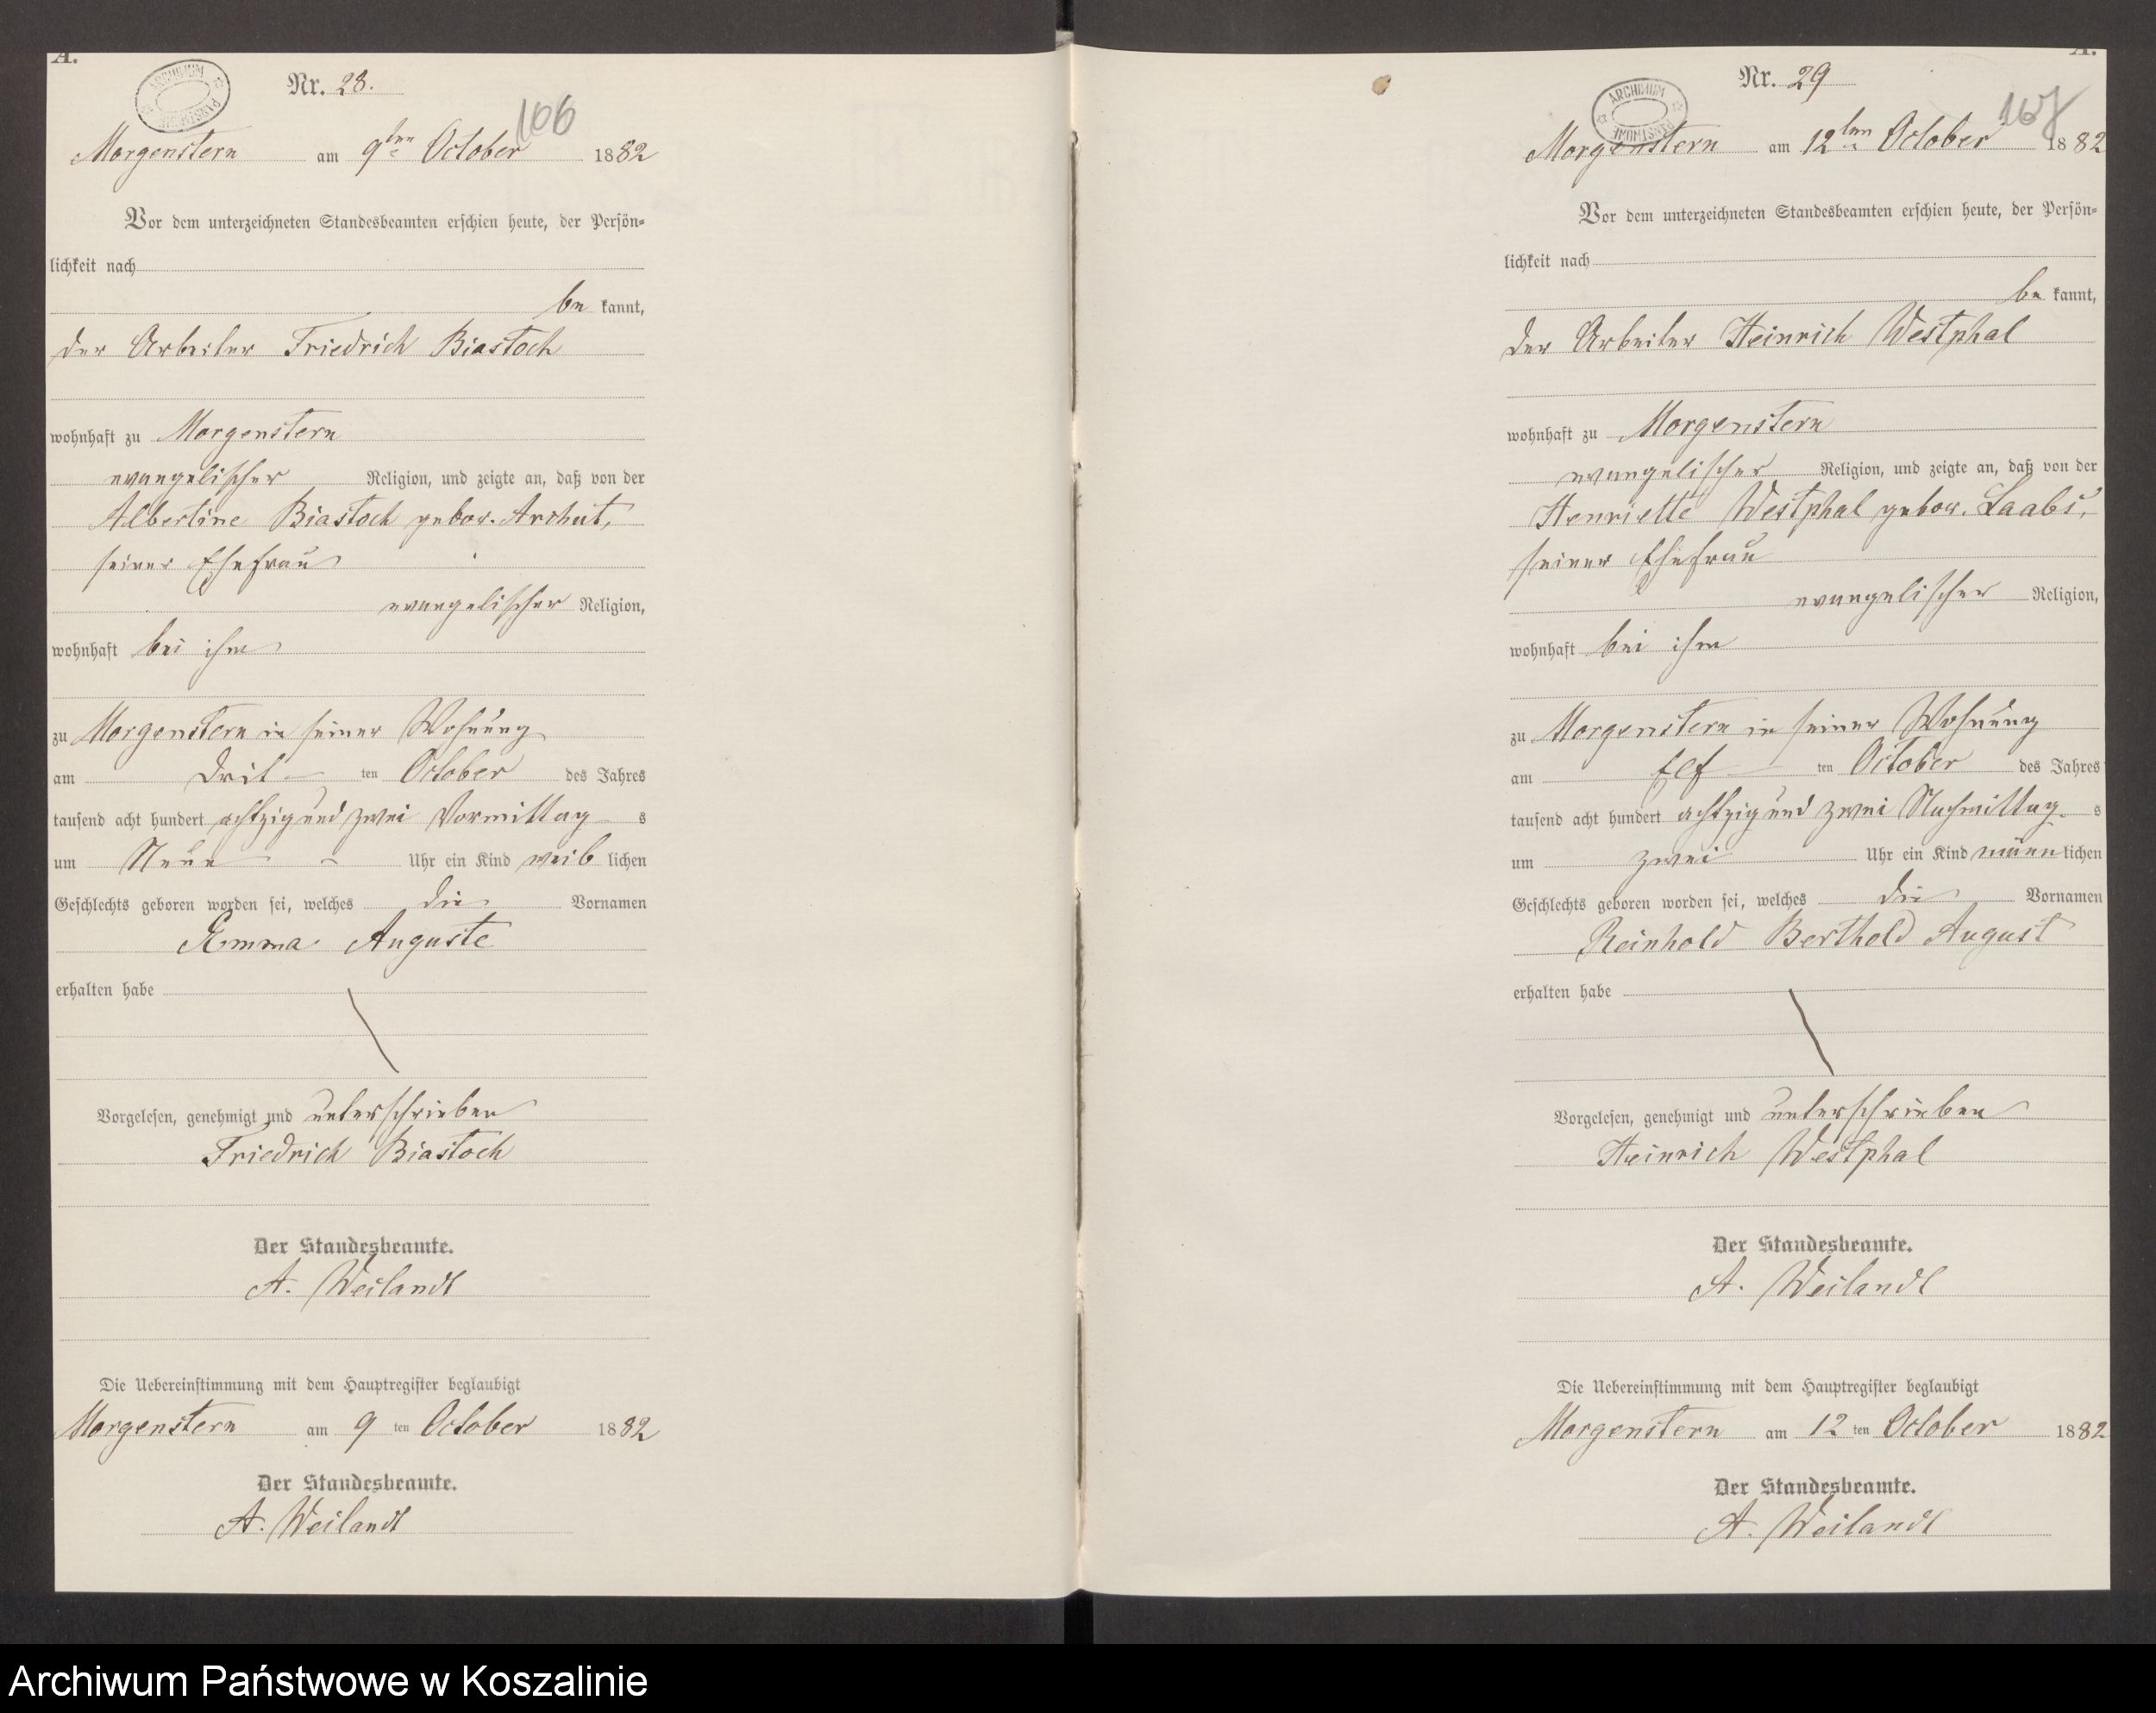 A.
ARCHIWUM PAŃSTWOWE
Nr. 28.
106
Morgenstern am 9ten October 1882
Vor dem unterzeichneten Standesbeamten erschien heute, der Persön-
lichkeit nach
be kannt,
der Arbeiter Friedrich Biastoch
wohnhaft zu Morgenstern
evangelischer Religion, und zeigte an, daß von der
Albertine Biastoch gebor. Archut,
seiner Ehefrau
evangelischer Religion,
wohnhaft bei ihm
zu Morgenstern in seiner Wohnung
am Drit ten October des Jahres
tausend acht hundert achtzig und zwei Vormittag s
um Neun Uhr ein Kind weib lichen
Geschlechts geboren worden sei, welches die Vornamen
Emma Auguste
erhalten habe
Vorgelesen, genehmigt und unterschrieben
Friedrich Biastoch
Der Standesbeamte.
A. Weilandt
Die Uebereinstimmung mit dem Hauptregister beglaubigt
Morgenstern am 9 ten October 1882
Der Standesbeamte.
A. Weilandt
A.
ARCHIWUM PAŃSTWOWE
Nr. 29
167
Morgenstern am 12ten October 1882
Vor dem unterzeichneten Standesbeamten erschien heute, der Persön-
lichkeit nach
be kannt,
der Arbeiter Heinrich Westphal
wohnhaft zu Morgenstern
evangelischer Religion, und zeigte an, daß von der
Henriette Westphal gebor. Laabs,
seiner Ehefrau
evangelischer Religion,
wohnhaft bei ihm
zu Morgenstern in seiner Wohnung
am Elf ten October des Jahres
tausend acht hundert achtzig und zwei Nachmittag s
um zwei Uhr ein Kind männ lichen
Geschlechts geboren worden sei, welches die Vornamen
Reinhold Berthold August
erhalten habe
Vorgelesen, genehmigt und unterschrieben
Heinrich Westphal
Der Standesbeamte.
A. Weilandt
Die Uebereinstimmung mit dem Hauptregister beglaubigt
Morgenstern am 12 ten October 1882
Der Standesbeamte.
A. Weilandt
Archiwum Państwowe w Koszalinie